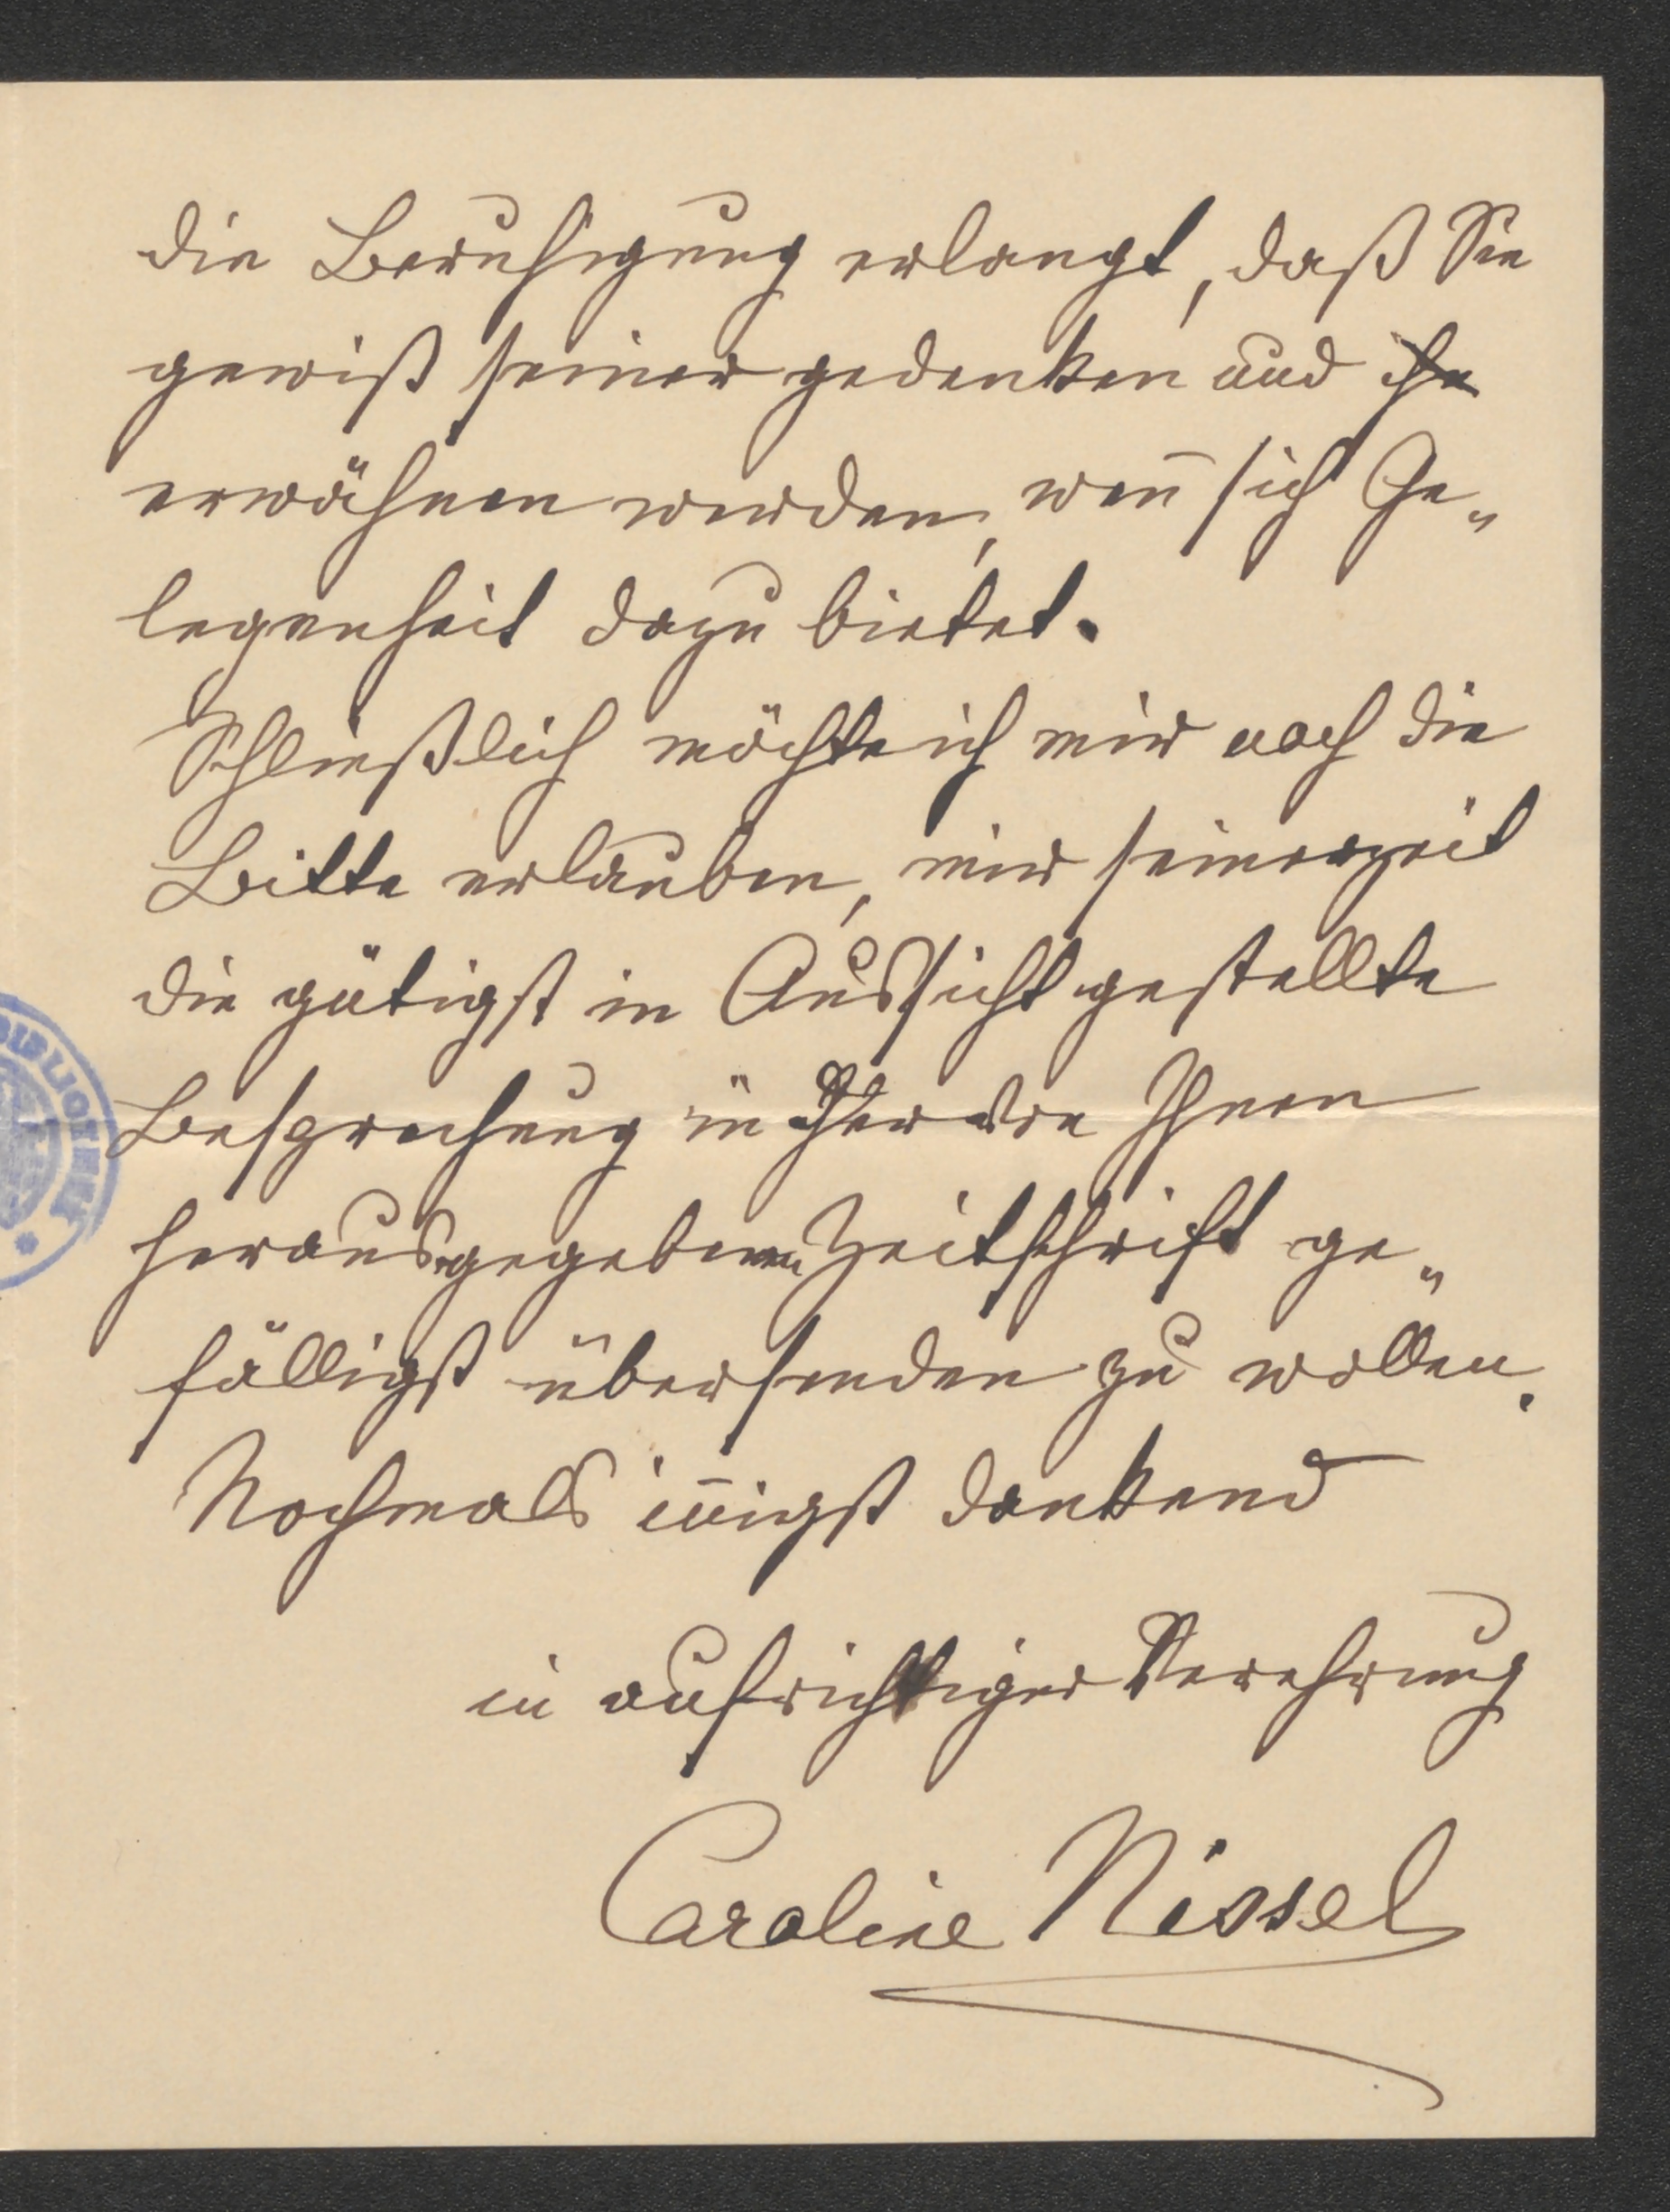 die Beruhigung erlangt, daß Sie
gewiß seiner gedenken und
erwähnen werden, wen̄ sich Ge„
legenheit dazu bietet.
Schließlich möchte ich mir noch die
Bitte erlauben, mir seinerzeit
die gütigst in Aussicht gestellte
Besprechung in der von Ihnen
herausgegebenen Zeitschrift ge„
fälligst übersenden zu wollen.
Nochmals in̄igst dankend
in aufrichtiger Verehrung
Caroline Nissel